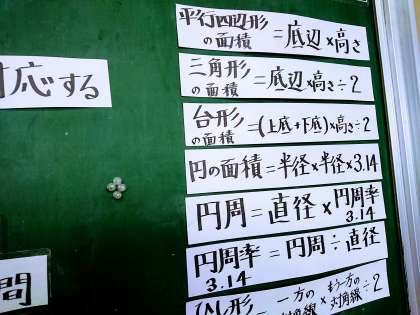 平行四辺形
の面積 = 底辺×高さ
三角形
の面積 = 底辺×高さ÷2
台形
の面積 =(上底+下底)×高さ÷2
円の面積=半径×半径×3.14
円周=直径×円周率
3.14
円周率 = 円周÷直径
3.14
ひし形 = 一方の対角線 × もう一方の対角線 ÷2
対応する
間